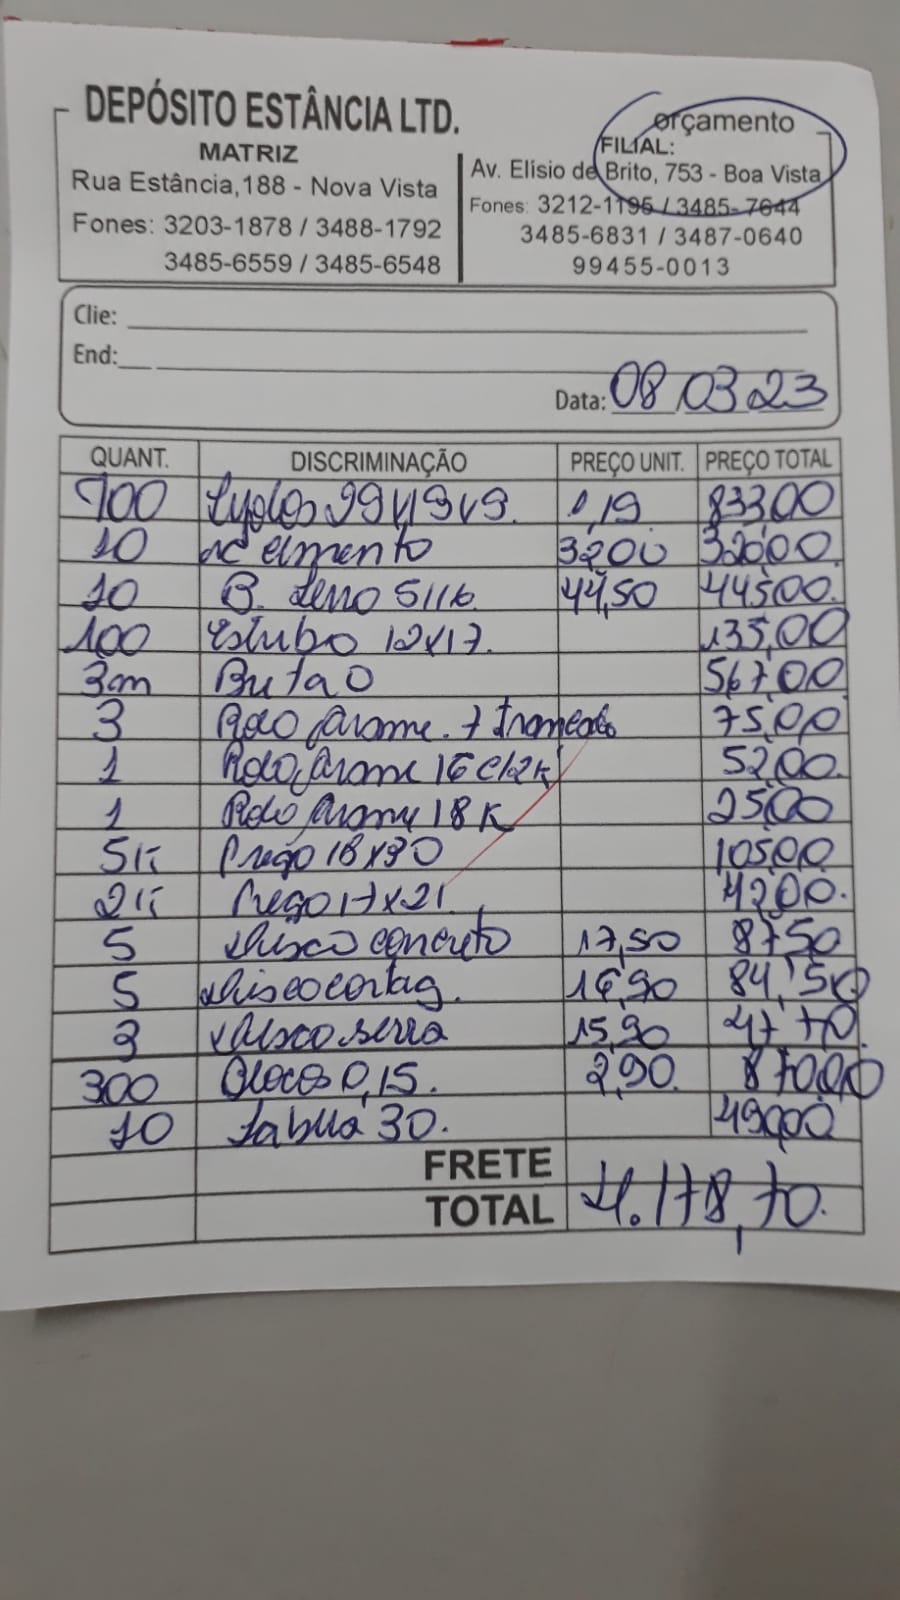 DEPÓSITO ESTÂNCIA LTD.
MATRIZ
Rua Estância,188 - Nova Vista
Fones: 3203-1878 / 3488-1792
3485-6559 / 3485-6548
orçamento
FILIAL:
Av. Elísio de Brito, 753 - Boa Vista
Fones: 3212-1195 / 3485-7644
3485-6831 / 3487-0640
99455-0013
Clie:
End:
Data: 08 03 23
QUANT. DISCRIMINAÇÃO PREÇO UNIT. PREÇO TOTAL
700 19x9. 1,19 833,00
10 cimento 32,00 320,00
10 B. 5/16 44,50 445,00
100 Estribo 12x17. 135,00
3m 567,00
3 Rolo Arame. 75,00
1 Rolo Arame 16 c/2K 52,00
1 Rolo Arame 18 K 25,00
5K Prego 18x30 105,00
2K Prego 17x21 42,00
5 disco concreto 17,50 87,50
5 disco cortag. 16,90 84,50
3 disco serra 15,90 47,70
300 Blocos 0,15. 2,90 870,00
10 Tabua 30. 490,00
FRETE
TOTAL 4.178,70